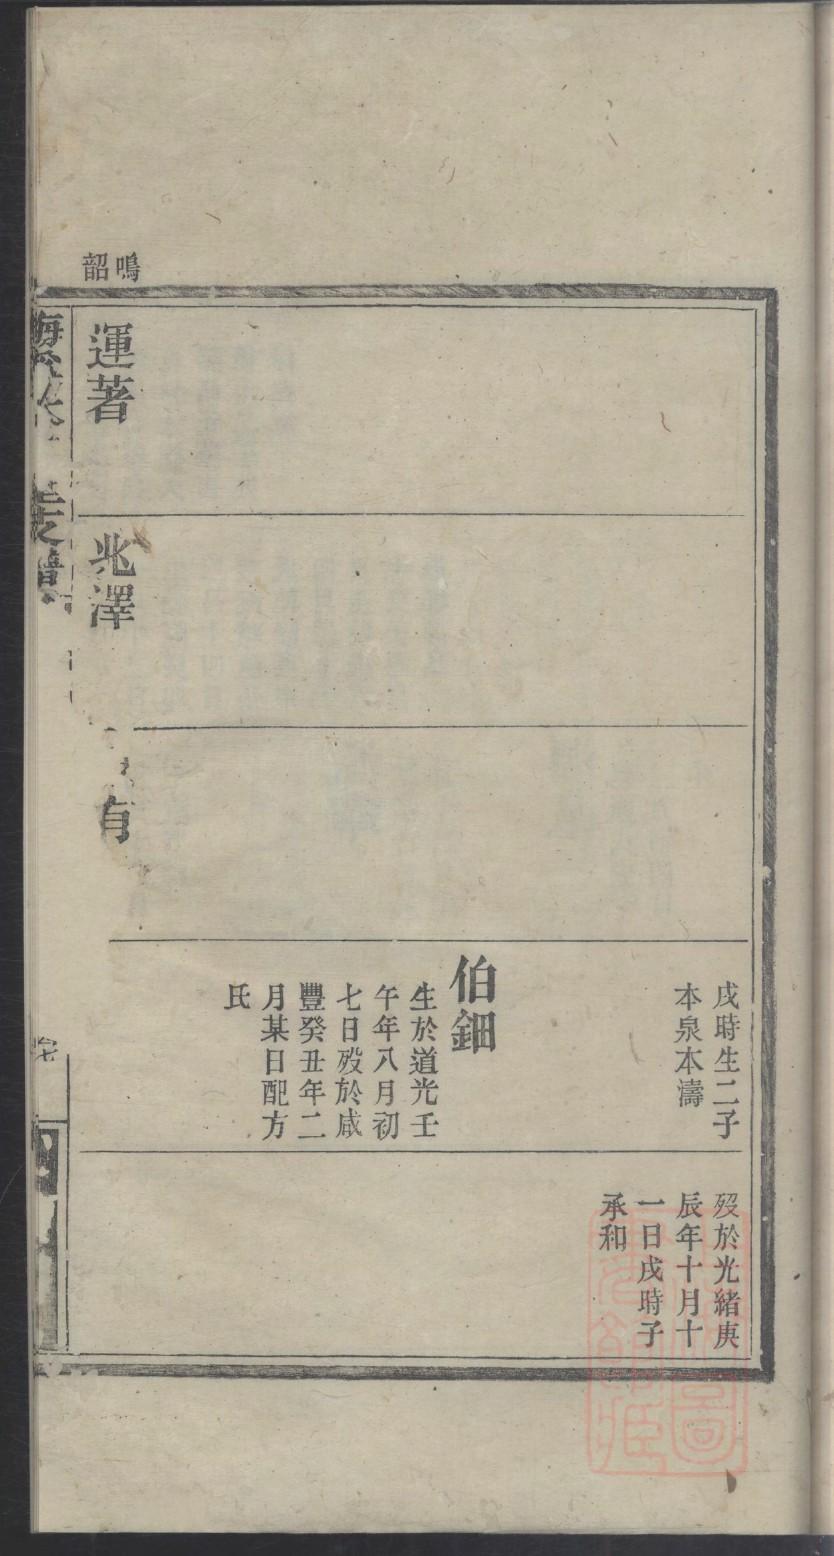 鳴韶
運著
兆澤
有
戌時生二子
本泉本濤
伯鈿
生於道光壬
午年八月初
七日歿於咸
豐癸丑年二
月某日配方
氏
歿於光緒庚
辰年十月十
一日戌時子
承和